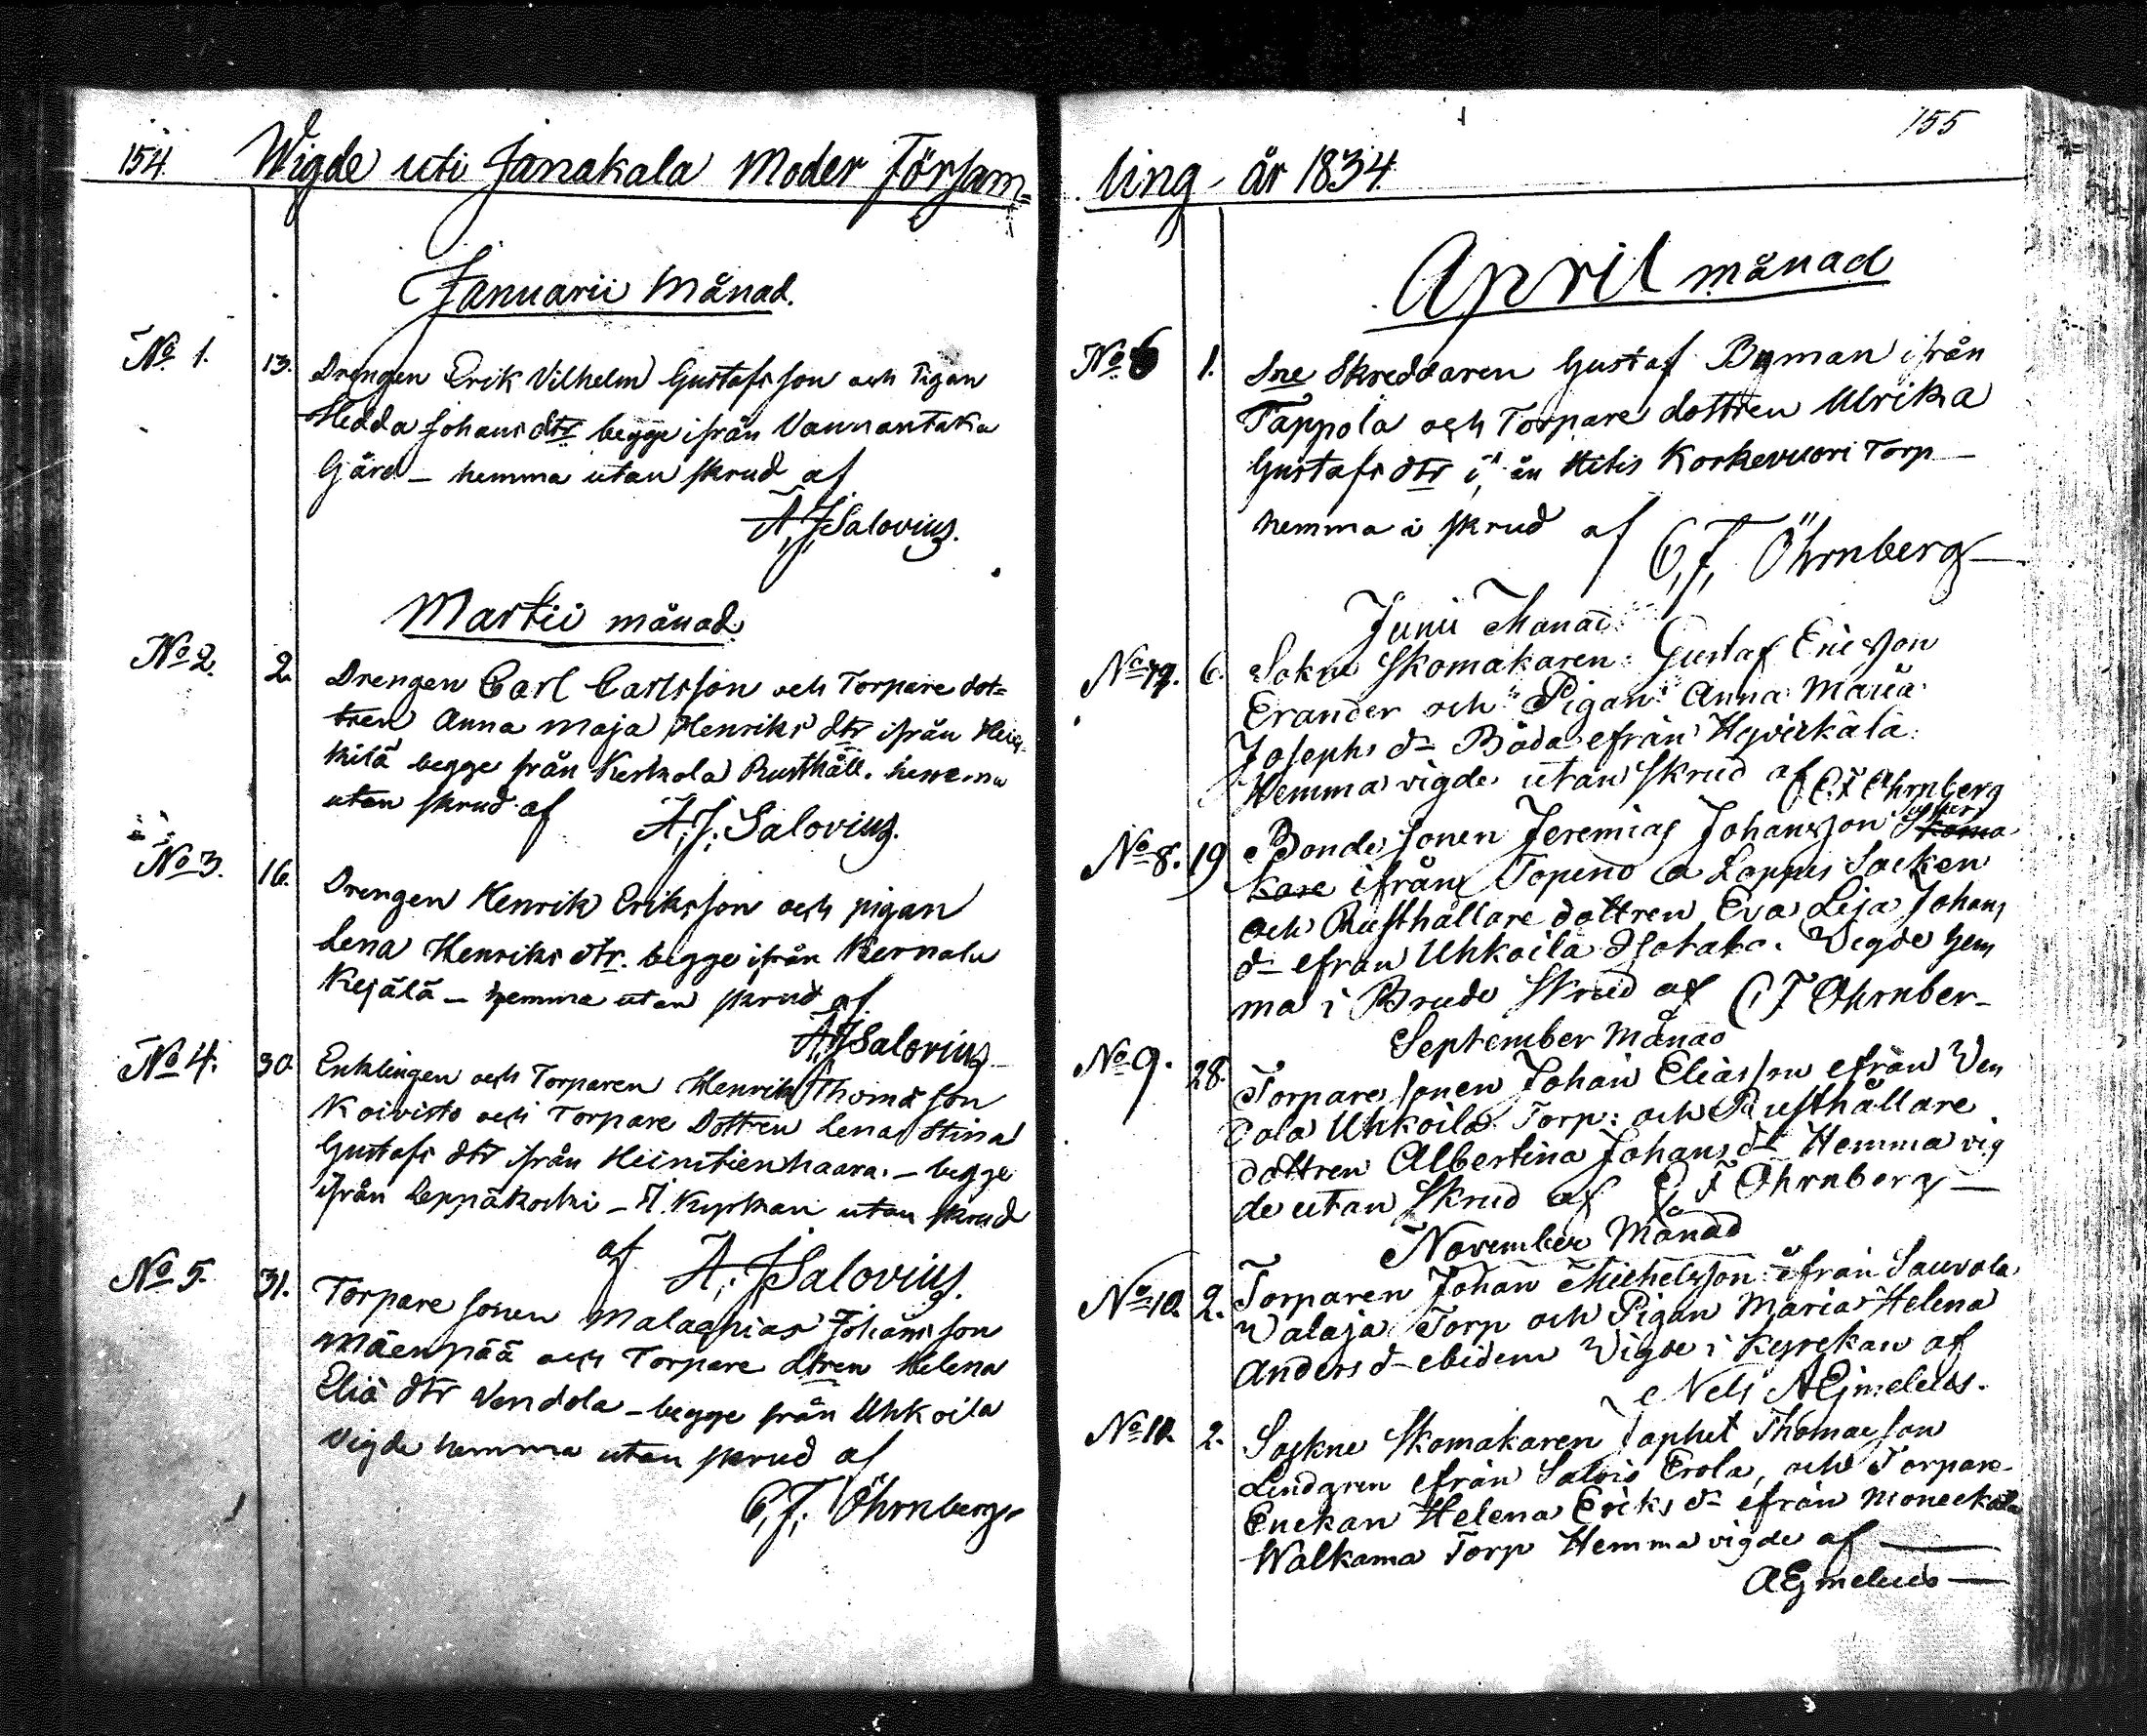 154. Wigde uti Janakala Moder Försam=
Januarii Månad.
No 1. 13. Drengen Erik Vilhelm Gustafsson och Pigan
Hedda Johans dtr begge ifrån Vannantaka
Gård – hemma utan skrud af
A. J. Salovius.
Martii månad
No 2. 2. Drengen Carl Carlsson och Torpare dot=
tren Anna Maja Henriks dtr ifrån
kilä begge från Kerkola Rusthåll. hemma
utan skrud af A. J. Salovius.
No 3. 16. Drengen Henrik Eriksson och pigan
Lena Henriks dtr. begge ifrån Kernalu
Kejälä – hemma utan skrud af
A. J Salovius
No 4. 30. Enklingen och Torparen Henrik Thomasson
Koivisto och Torpare Dottren Lena Stina
Gustafs dtr ifrån Heinäienhaara. – begge
ifrån Leppäkoski – i Kyrkan utan skrud
af A. J Salovius.
No 5. 31. Torpare sonen Malachias Johansson
Mäenpää och Torpare dtren Helena
Eliä dtr Vendola – begge från Uhkoila
Vigde hemma utan skrud af
C. J. Öhrnberg.
155
ling – år 1834.
April månad
No 6 1. Sne Skreddaren Gustaf Byman ifrån
Tappola och Torpare dottren Ulrika
Gustafs dtr Hitis Korkevuori Torp –
hemma i skrud af C. J. Öhrnberg –
Junii Månad
No 7. 6. Sokne Skomakaren Gustaf Ericsson
Erander och Pigan Anna Maria
Josephs d– Båda efrån Hyvickälä
Hemma vigde utan Skrud af C. F. Öhrnberg
No 8. 19 Bonde sonen Jeremias Johansson Skoma
kare ifrån Topeno a Loppis Socken
och Rusthållare dottren Eva Lisa Johans
d– efrån Uhkoila Isotalo. Vigde hem
ma i Brude Skrud af C F Öhrnber–
September Månad
No 9. 28. Torpare sonen Johan Eliasson efrån Ven
dola Uhkoila Torp: och Rusthållare
dottren Albertina Johans d– Hemma vig
de utan Skrud af C F Öhrnberg –
November Månad
No 10. 2. Torparen Johan Michelsson ifrån Sauvala
Walaja Torp och Pigan Maria Helena
Anders d– ebidem Vigde i Kyrekan af
Nels AEjmeleus.
No 11. 2. Sockne Skomakaren Japhet Thomasson
Lindgren efrån Salois Erola, och Torpare
Enckan Helena Eriks d– efrån Moneckala
Walkama Torp Hemma vigde af –
AEjmeleus –